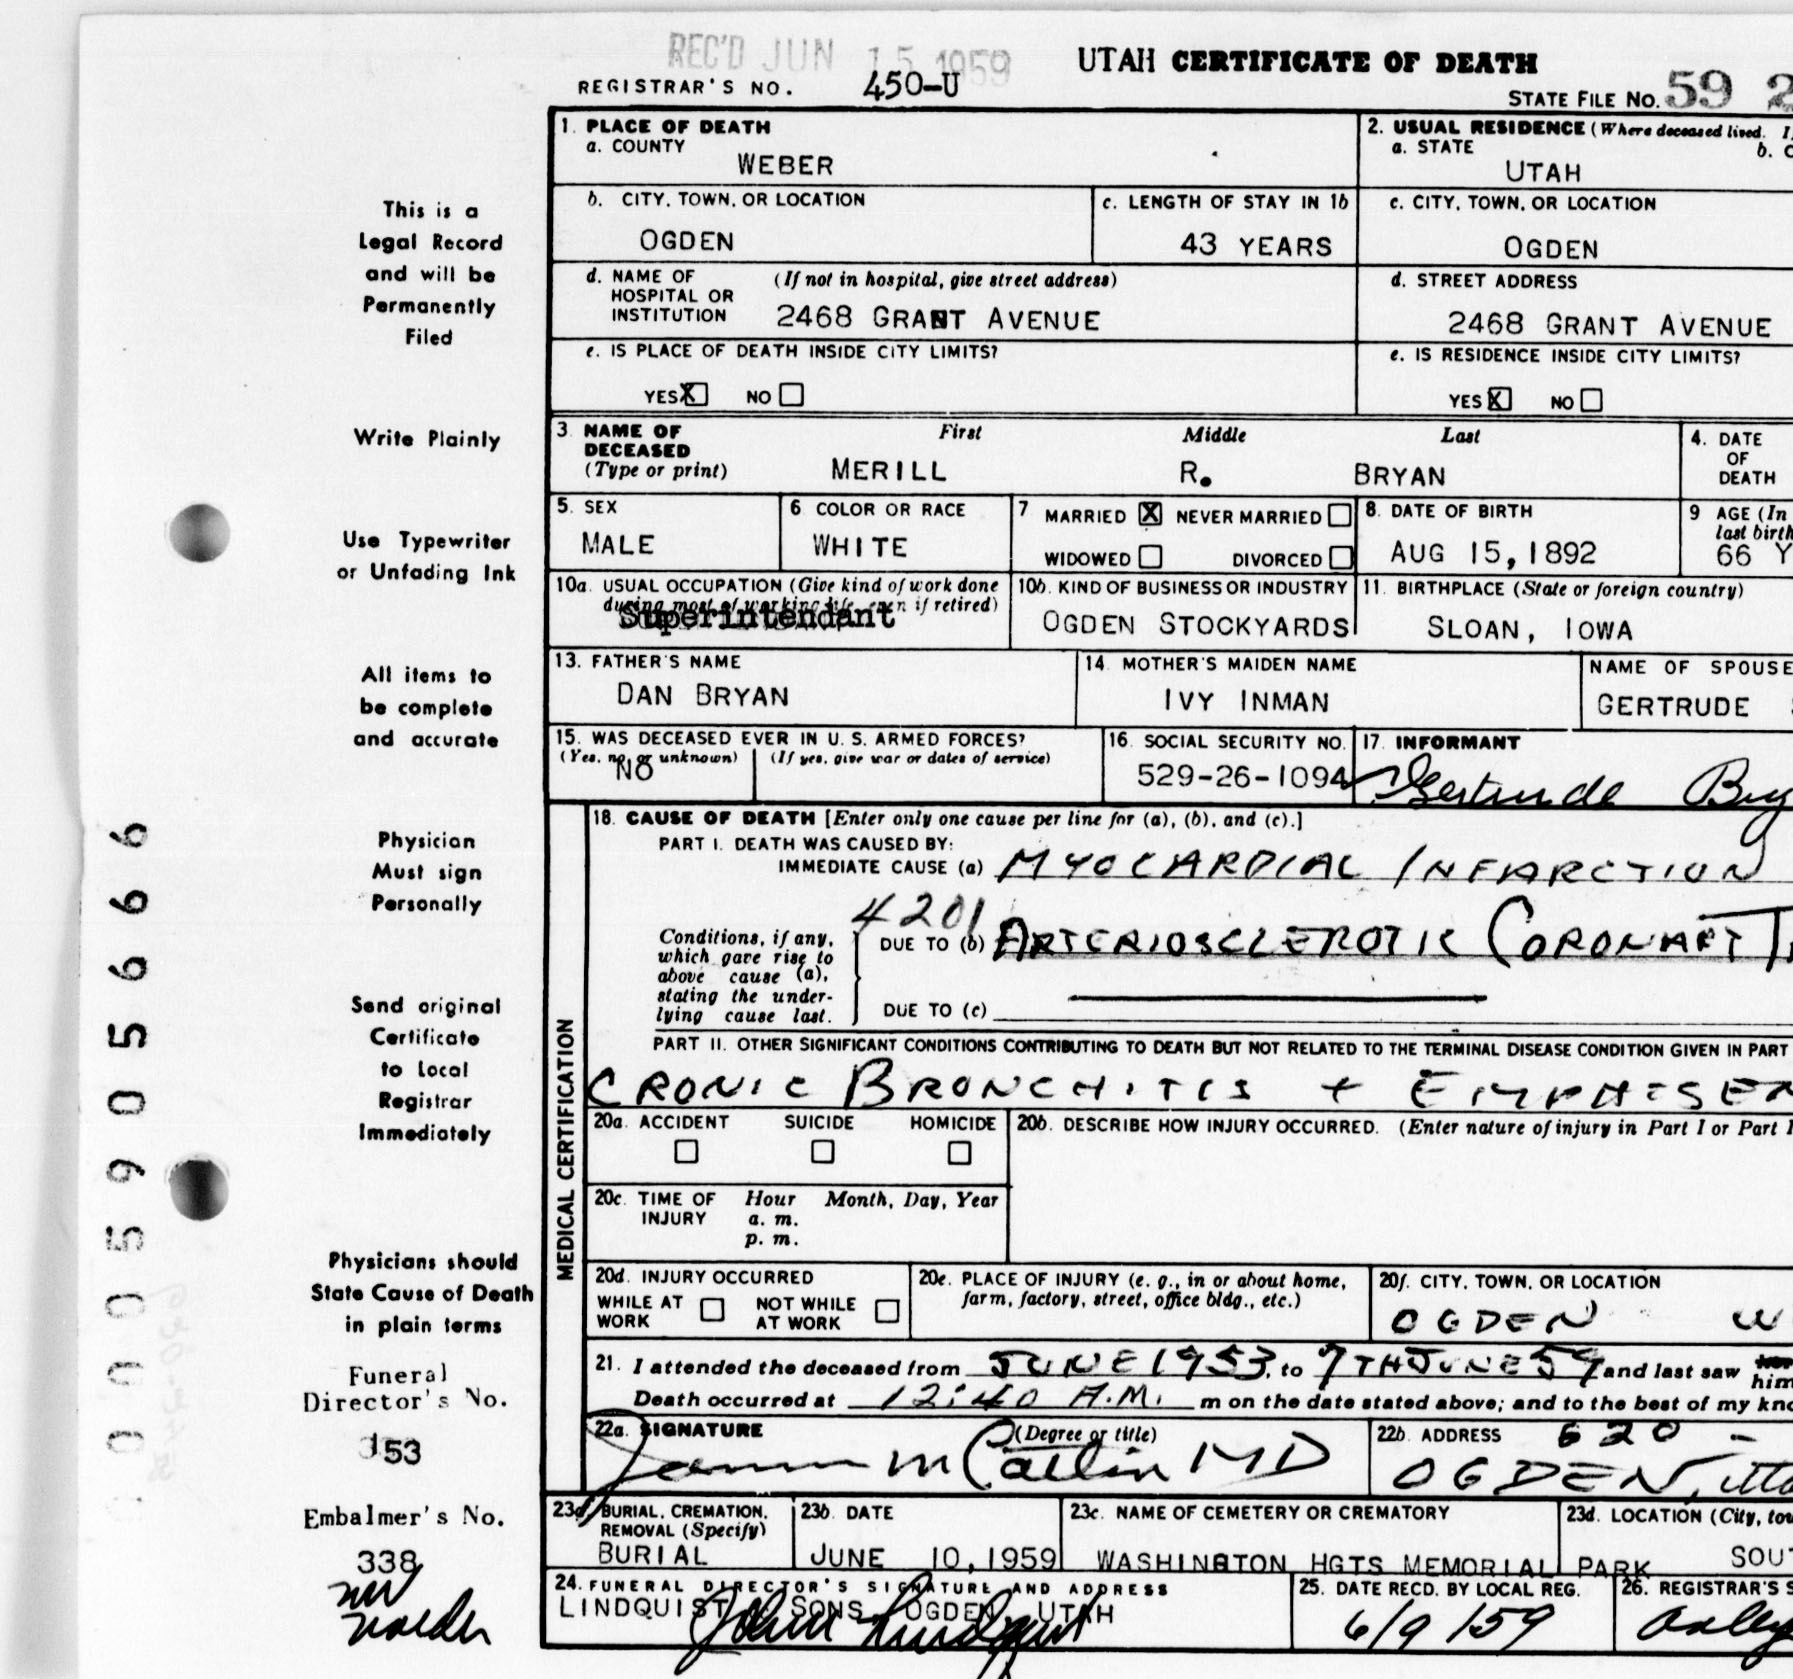 REC'D JUN 15 1959
UTAH CERTIFICATE OF DEATH
REGISTRAR'S NO. 450-U
STATE FILE NO. 59 2
1. PLACE OF DEATH
a. COUNTY
WEBER
2. USUAL RESIDENCE (Where deceased lived.
a. STATE
b.
UTAH
b. CITY, TOWN, OR LOCATION
OGDEN
c. LENGTH OF STAY IN 1b
43 YEARS
c. CITY, TOWN, OR LOCATION
OGDEN
d. NAME OF HOSPITAL OR INSTITUTION
(If not in hospital, give street address)
2468 GRANT AVENUE
d. STREET ADDRESS
2468 GRANT AVENUE
e. IS PLACE OF DEATH INSIDE CITY LIMITS?
YES X NO
e. IS RESIDENCE INSIDE CITY LIMITS?
YES X NO
3 NAME OF DECEASED
(Type or print)
First Middle Last
MERILL R. BRYAN
4. DATE OF DEATH
5. SEX
MALE
6 COLOR OR RACE
WHITE
7 MARRIED X NEVER MARRIED
WIDOWED DIVORCED
8. DATE OF BIRTH
AUG 15, 1892
9 AGE (In
last birth
66 Y
10a. USUAL OCCUPATION (Give kind of work done
during most of working life, even if retired)
Superintendant
10b. KIND OF BUSINESS OR INDUSTRY
OGDEN STOCKYARDS
11. BIRTHPLACE (State or foreign country)
SLOAN, IOWA
13. FATHER'S NAME
DAN BRYAN
14. MOTHER'S MAIDEN NAME
IVY INMAN
NAME OF SPOUSE
GERTRUDE
15. WAS DECEASED EVER IN U. S. ARMED FORCES?
(Yes, no, or unknown) (If yes, give war or dates of service)
NO
16. SOCIAL SECURITY NO.
529-26-1094
17. INFORMANT
Gertrude Bry
MEDICAL CERTIFICATION
18. CAUSE OF DEATH [Enter only one cause per line for (a), (b), and (c).]
PART I. DEATH WAS CAUSED BY:
IMMEDIATE CAUSE (a) MYOCARDIAL INFARCTION
4201
Conditions, if any,
which gave rise to
above cause (a),
stating the under-
lying cause last.
DUE TO (b) ARTERIOSCLEROTIC CORONARY
DUE TO (c)
PART II. OTHER SIGNIFICANT CONDITIONS CONTRIBUTING TO DEATH BUT NOT RELATED TO THE TERMINAL DISEASE CONDITION GIVEN IN PART
CRONIC BRONCHITIS + EMPHISEM
20a. ACCIDENT SUICIDE HOMICIDE
20b. DESCRIBE HOW INJURY OCCURRED. (Enter nature of injury in Part I or Part
20c. TIME OF INJURY
Hour Month, Day, Year
a. m.
p. m.
20d. INJURY OCCURRED
WHILE AT WORK
NOT WHILE AT WORK
20e. PLACE OF INJURY (e. g., in or about home,
farm, factory, street, office bldg., etc.)
20f. CITY, TOWN, OR LOCATION
OGDEN W
21. I attended the deceased from JUNE 1953, to 7TH JUNE 59 and last saw him
Death occurred at 12:40 A.M. m on the date stated above; and to the best of my kno
22a. SIGNATURE
(Degree or title)
MD
22b. ADDRESS 620 -
OGDEN, Uta
23a. BURIAL, CREMATION, REMOVAL (Specify)
BURIAL
23b. DATE
JUNE 10, 1959
23c. NAME OF CEMETERY OR CREMATORY
WASHINGTON HGTS MEMORIAL PARK
23d. LOCATION (City, tow
SOUT
24. FUNERAL DIRECTOR'S SIGNATURE AND ADDRESS
LINDQUIST SONS OGDEN UTAH
John Lindquist
25. DATE RECD. BY LOCAL REG.
6/9/59
26. REGISTRAR'S S
This is a
Legal Record
and will be
Permanently
Filed
Write Plainly
Use Typewriter
or Unfading Ink
All items to
be complete
and accurate
Physician
Must sign
Personally
Send original
Certificate
to Local
Registrar
Immediately
Physicians should
State Cause of Death
in plain terms
Funeral
Director's No.
153
Embalmer's No.
338
0005905666